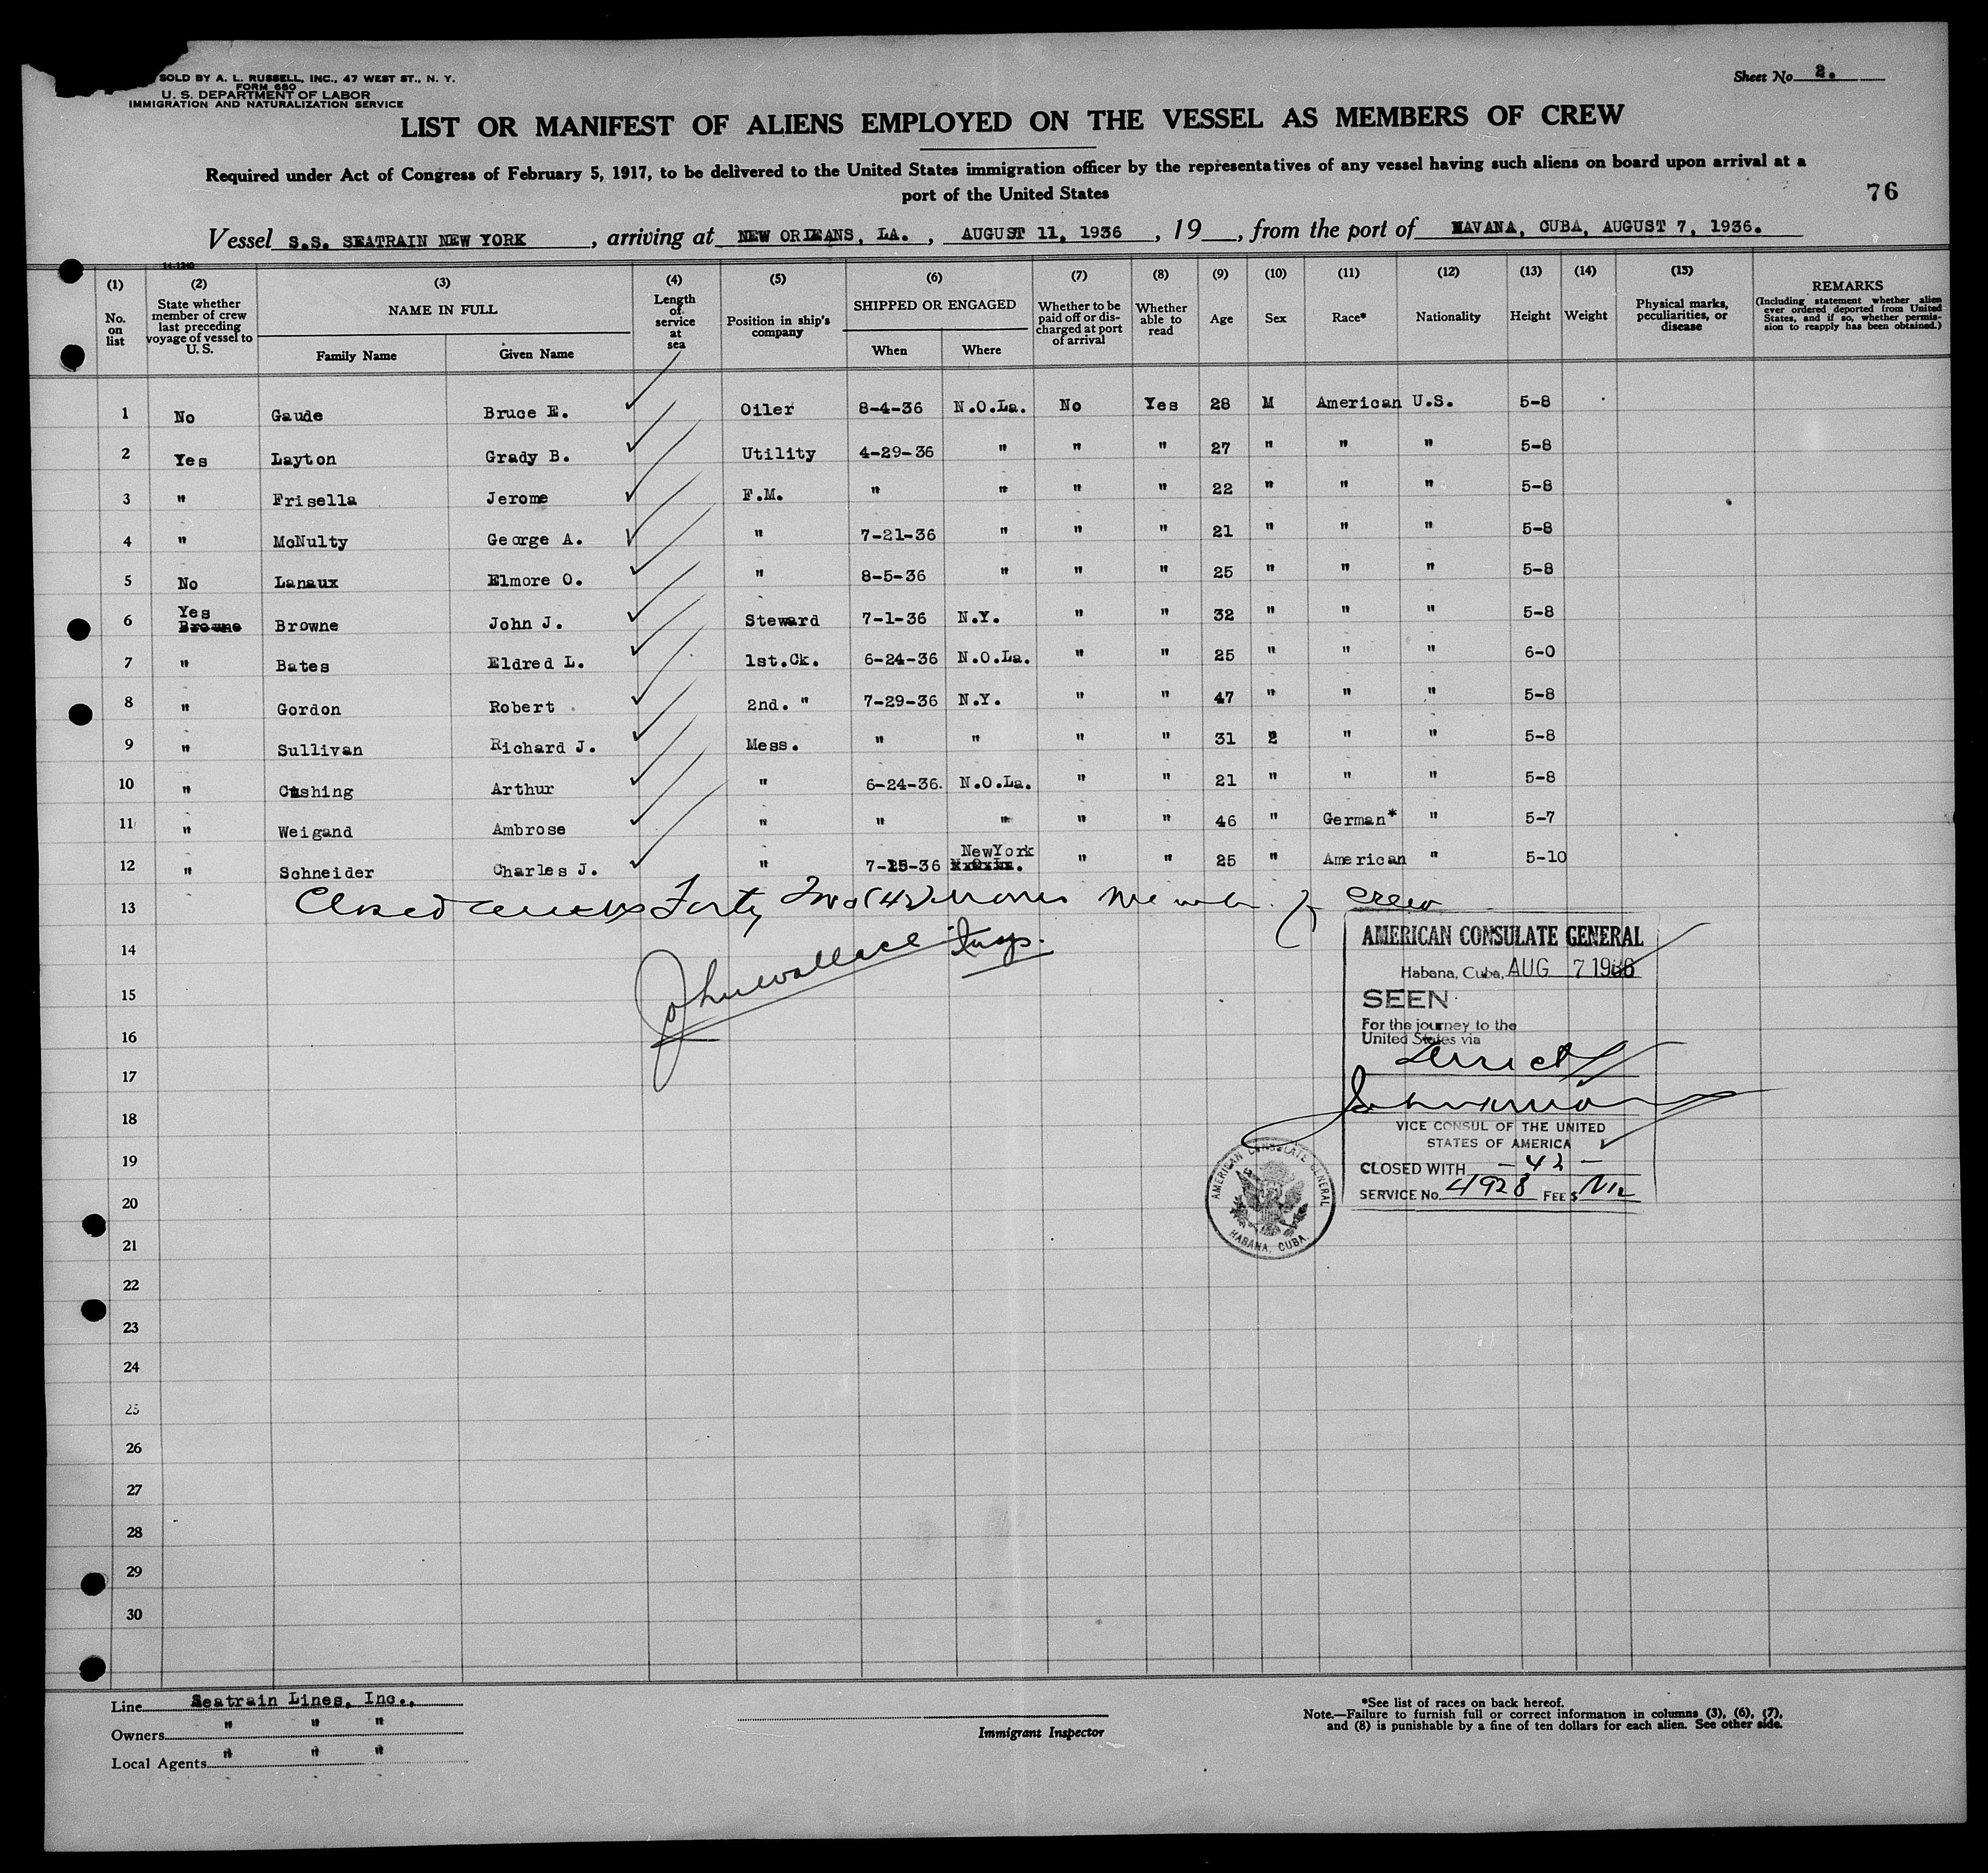 SOLD BY A. L. RUSSELL, INC., 47 WEST ST., N. Y.
FORM 680
U. S. DEPARTMENT OF LABOR
IMMIGRATION AND NATURALIZATION SERVICE
Sheet No. 2.
LIST OR MANIFEST OF ALIENS EMPLOYED ON THE VESSEL AS MEMBERS OF CREW
Required under Act of Congress of February 5, 1917, to be delivered to the United States immigration officer by the representatives of any vessel having such aliens on board upon arrival at a
port of the United States
76
Vessel S.S. SEATRAIN NEW YORK, arriving at NEW ORLEANS, LA., AUGUST 11, 1936, 19__, from the port of HAVANA, CUBA, AUGUST 7, 1936.
14-1240
(1) No. on list
(2) State whether member of crew last preceding voyage of vessel to U. S.
(3) NAME IN FULL Family Name Given Name
(4) Length of service at sea
(5) Position in ship's company
(6) SHIPPED OR ENGAGED When Where
(7) Whether to be paid off or discharged at port of arrival
(8) Whether able to read
(9) Age
(10) Sex
(11) Race*
(12) Nationality
(13) Height
(14) Weight
(15) Physical marks, peculiarities, or disease
REMARKS (Including statement whether alien ever ordered deported from United States, and if so, whether permission to reapply has been obtained.)
1 No Gaude Bruce E. Oiler 8-4-36 N.O.La. No Yes 28 M American U.S. 5-8
2 Yes Layton Grady B. Utility 4-29-36 " " " 27 " " " 5-8
3 " Frisella Jerome F.M. " " " " 22 " " " 5-8
4 " McNulty George A. " 7-21-36 " " " 21 " " " 5-8
5 No Lanaux Elmore O. " 8-5-36 " " " 25 " " " 5-8
6 Yes Browne Browne John J. Steward 7-1-36 N.Y. " " 32 " " " 5-8
7 " Bates Eldred L. 1st.Ck. 6-24-36 N.O.La. " " 25 " " " 6-0
8 " Gordon Robert 2nd. " 7-29-36 N.Y. " " 47 " " " 5-8
9 " Sullivan Richard J. Mess. " " " " 31 " " " 5-8
10 " Cushing Arthur " 6-24-36. N.O.La. " " 21 " " " 5-8
11 " Weigand Ambrose " " " " " 46 " German* " 5-7
12 " Schneider Charles J. " 7-25-36 NewYork " " 25 " American " 5-10
13 Closed Forty Two (42) of crew
14
John Wallace Insp.
15
16
17
18
19
20
21
22
23
24
25
26
27
28
29
30
AMERICAN CONSULATE GENERAL
Habana, Cuba, AUG 7 1936
SEEN
For the journey to the
United States via
Direct
VICE CONSUL OF THE UNITED
STATES OF AMERICA
CLOSED WITH - 42 -
SERVICE No. 4928 FEE $ Nil
AMERICAN CONSULATE GENERAL
HABANA, CUBA.
Line Seatrain Lines, Inc.,
Owners " " "
Local Agents " " "
Immigrant Inspector
*See list of races on back hereof.
Note.—Failure to furnish full or correct information in columns (3), (6), (7),
and (8) is punishable by a fine of ten dollars for each alien. See other side.